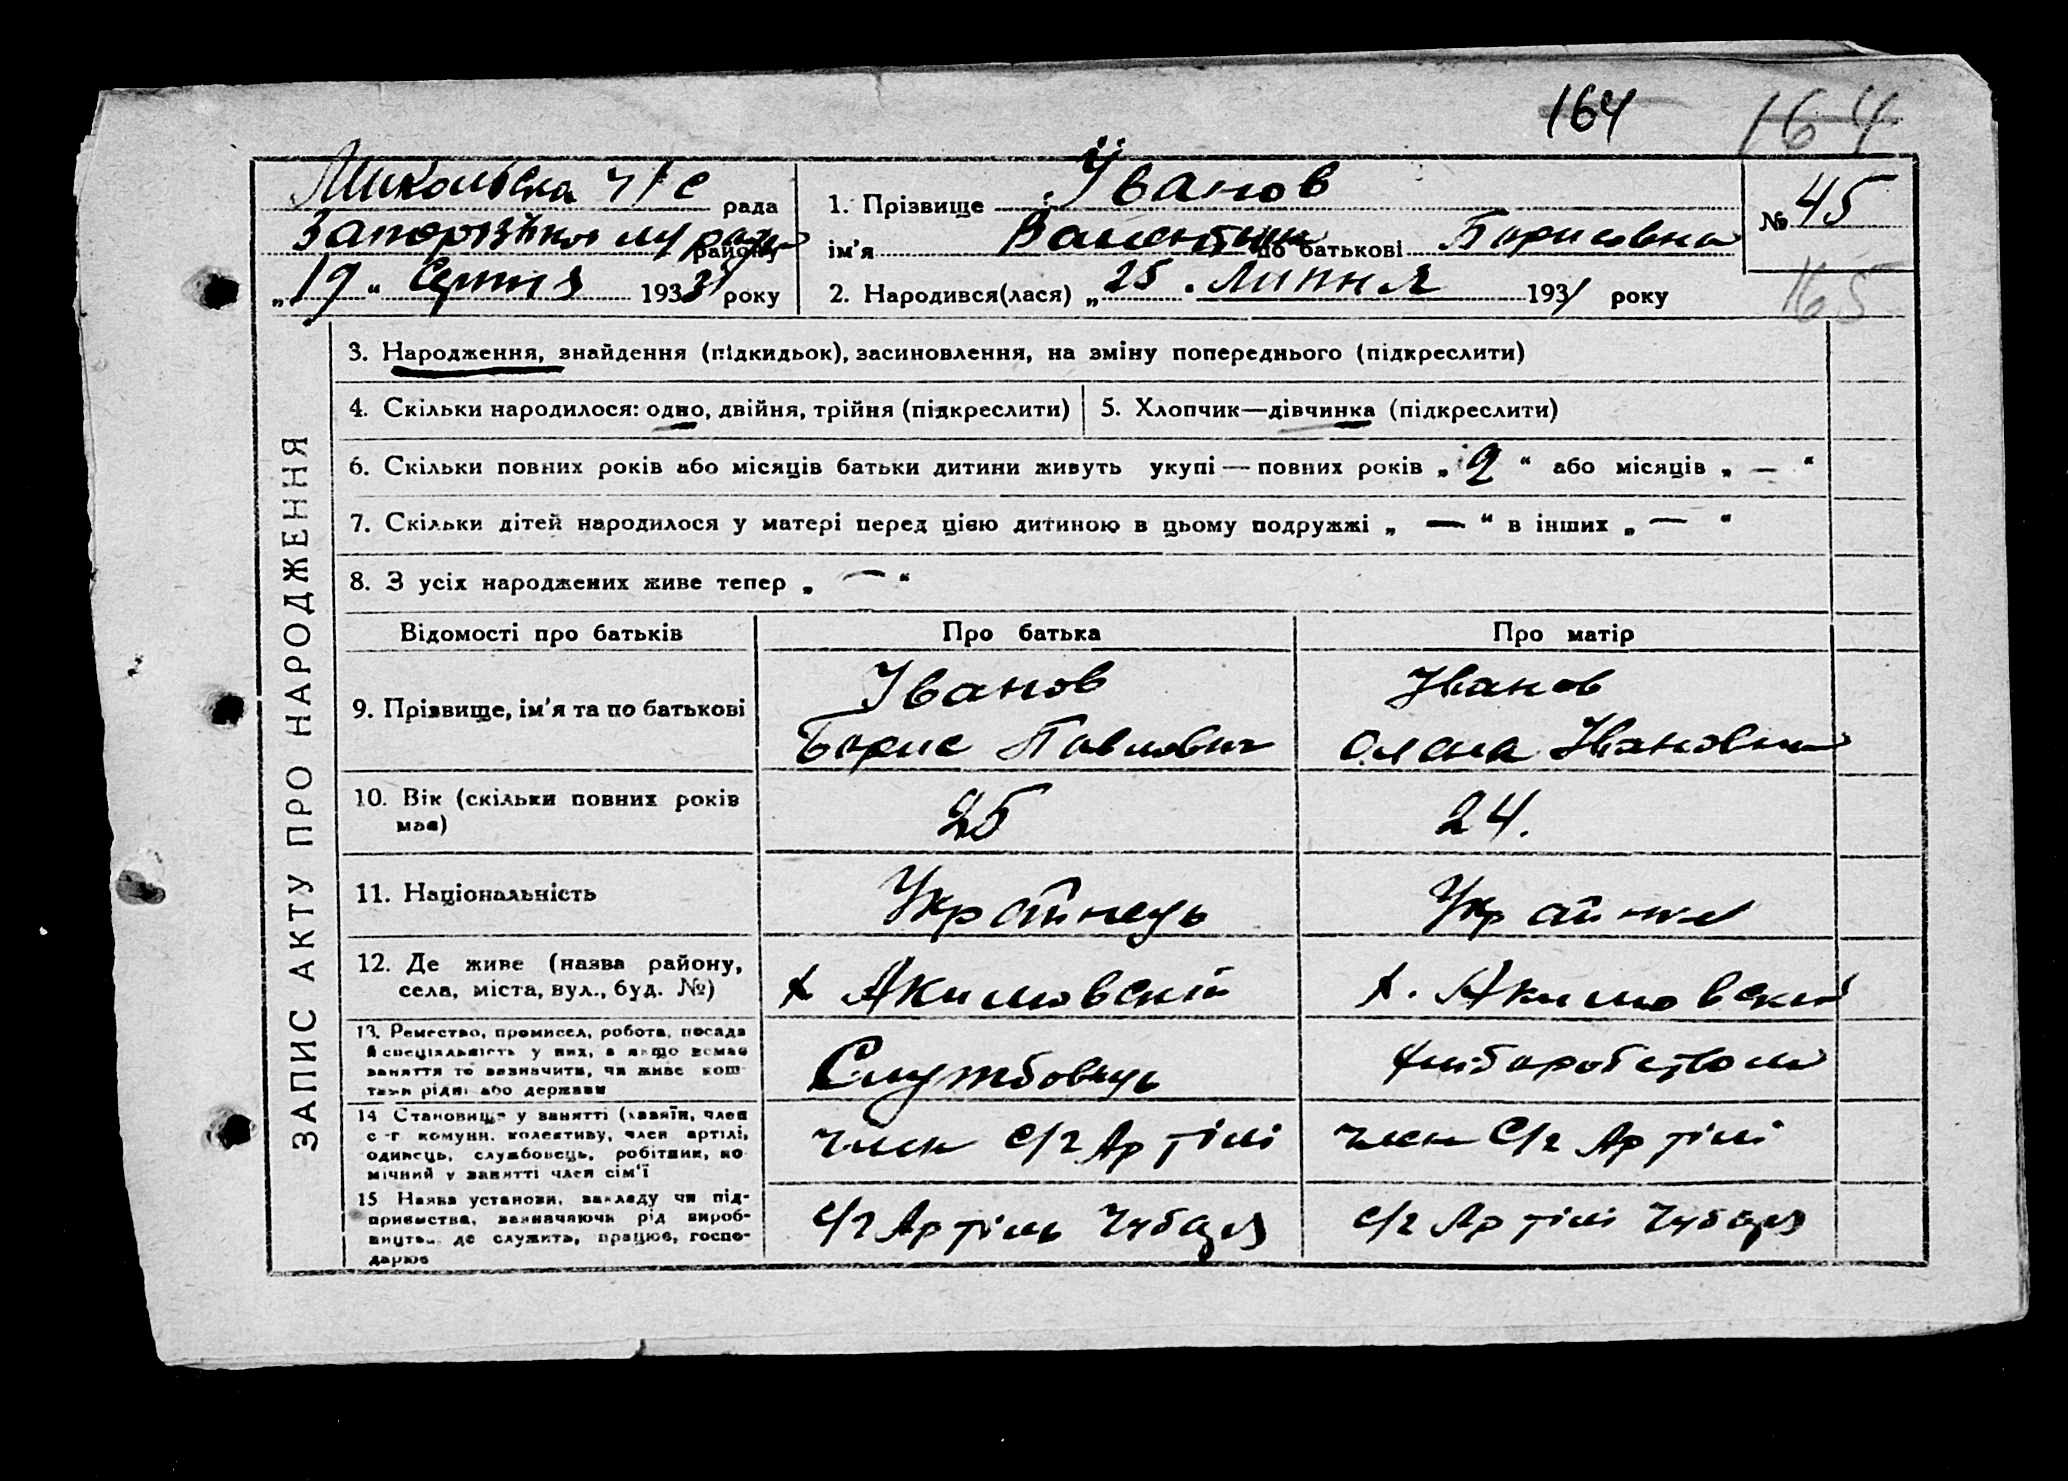 164 164
Микольска ч/с рада
Запорізької м/ради району
„19“ Серпня 1931 року
1. Прізвище Іванов
ім'я Валентина по батькові Борисовна
2. Народився(лася) „25. Липня 1931 року
№ 45
165
ЗАПИС АКТУ ПРО НАРОДЖЕННЯ
3. Народження, знайдення (підкидьок), засиновлення, на зміну попереднього (підкреслити)
4. Скільки народилося: одно, двійня, трійня (підкреслити)
5. Хлопчик—дівчинка (підкреслити)
6. Скільки повних років або місяців батьки дитини живуть укупі — повних років „2“ або місяців „—“
7. Скільки дітей народилося у матері перед цією дитиною в цьому подружжі „—“ в інших „—“
8. З усіх народжених живе тепер „—“
Відомості про батьків Про батька Про матір
9. Прізвище, ім'я та по батькові
Іванов
Борис Павлович
Іванов
Олена Івановна
10. Вік (скільки повних років
має)
25
24.
11. Національність
Українець
Українка
12. Де живе (назва району,
села, міста, вул., буд. №)
х Акимовскій
х. Акимовский
13. Ремество, промисел, робота, посада
й спеціяльність у них, а якщо немає
заняття то зазначити, чи живе кош-
тами рідні або держави
Службовець
хліборобством
14 Становище у занятті (хазяїн, член
с-г. комуни, колективу, член артілі,
одинець, службовець, робітник, по-
мічний у занятті член сім'ї
член с/г Артілі
член С/г Артілі
15 Назва установи, закладу чи під-
приємства, зазначаючи рід вироб-
ництва де служить, працює, госпо-
дарює
с/г Артіль Чубаря
с/г Артілі Чубаря